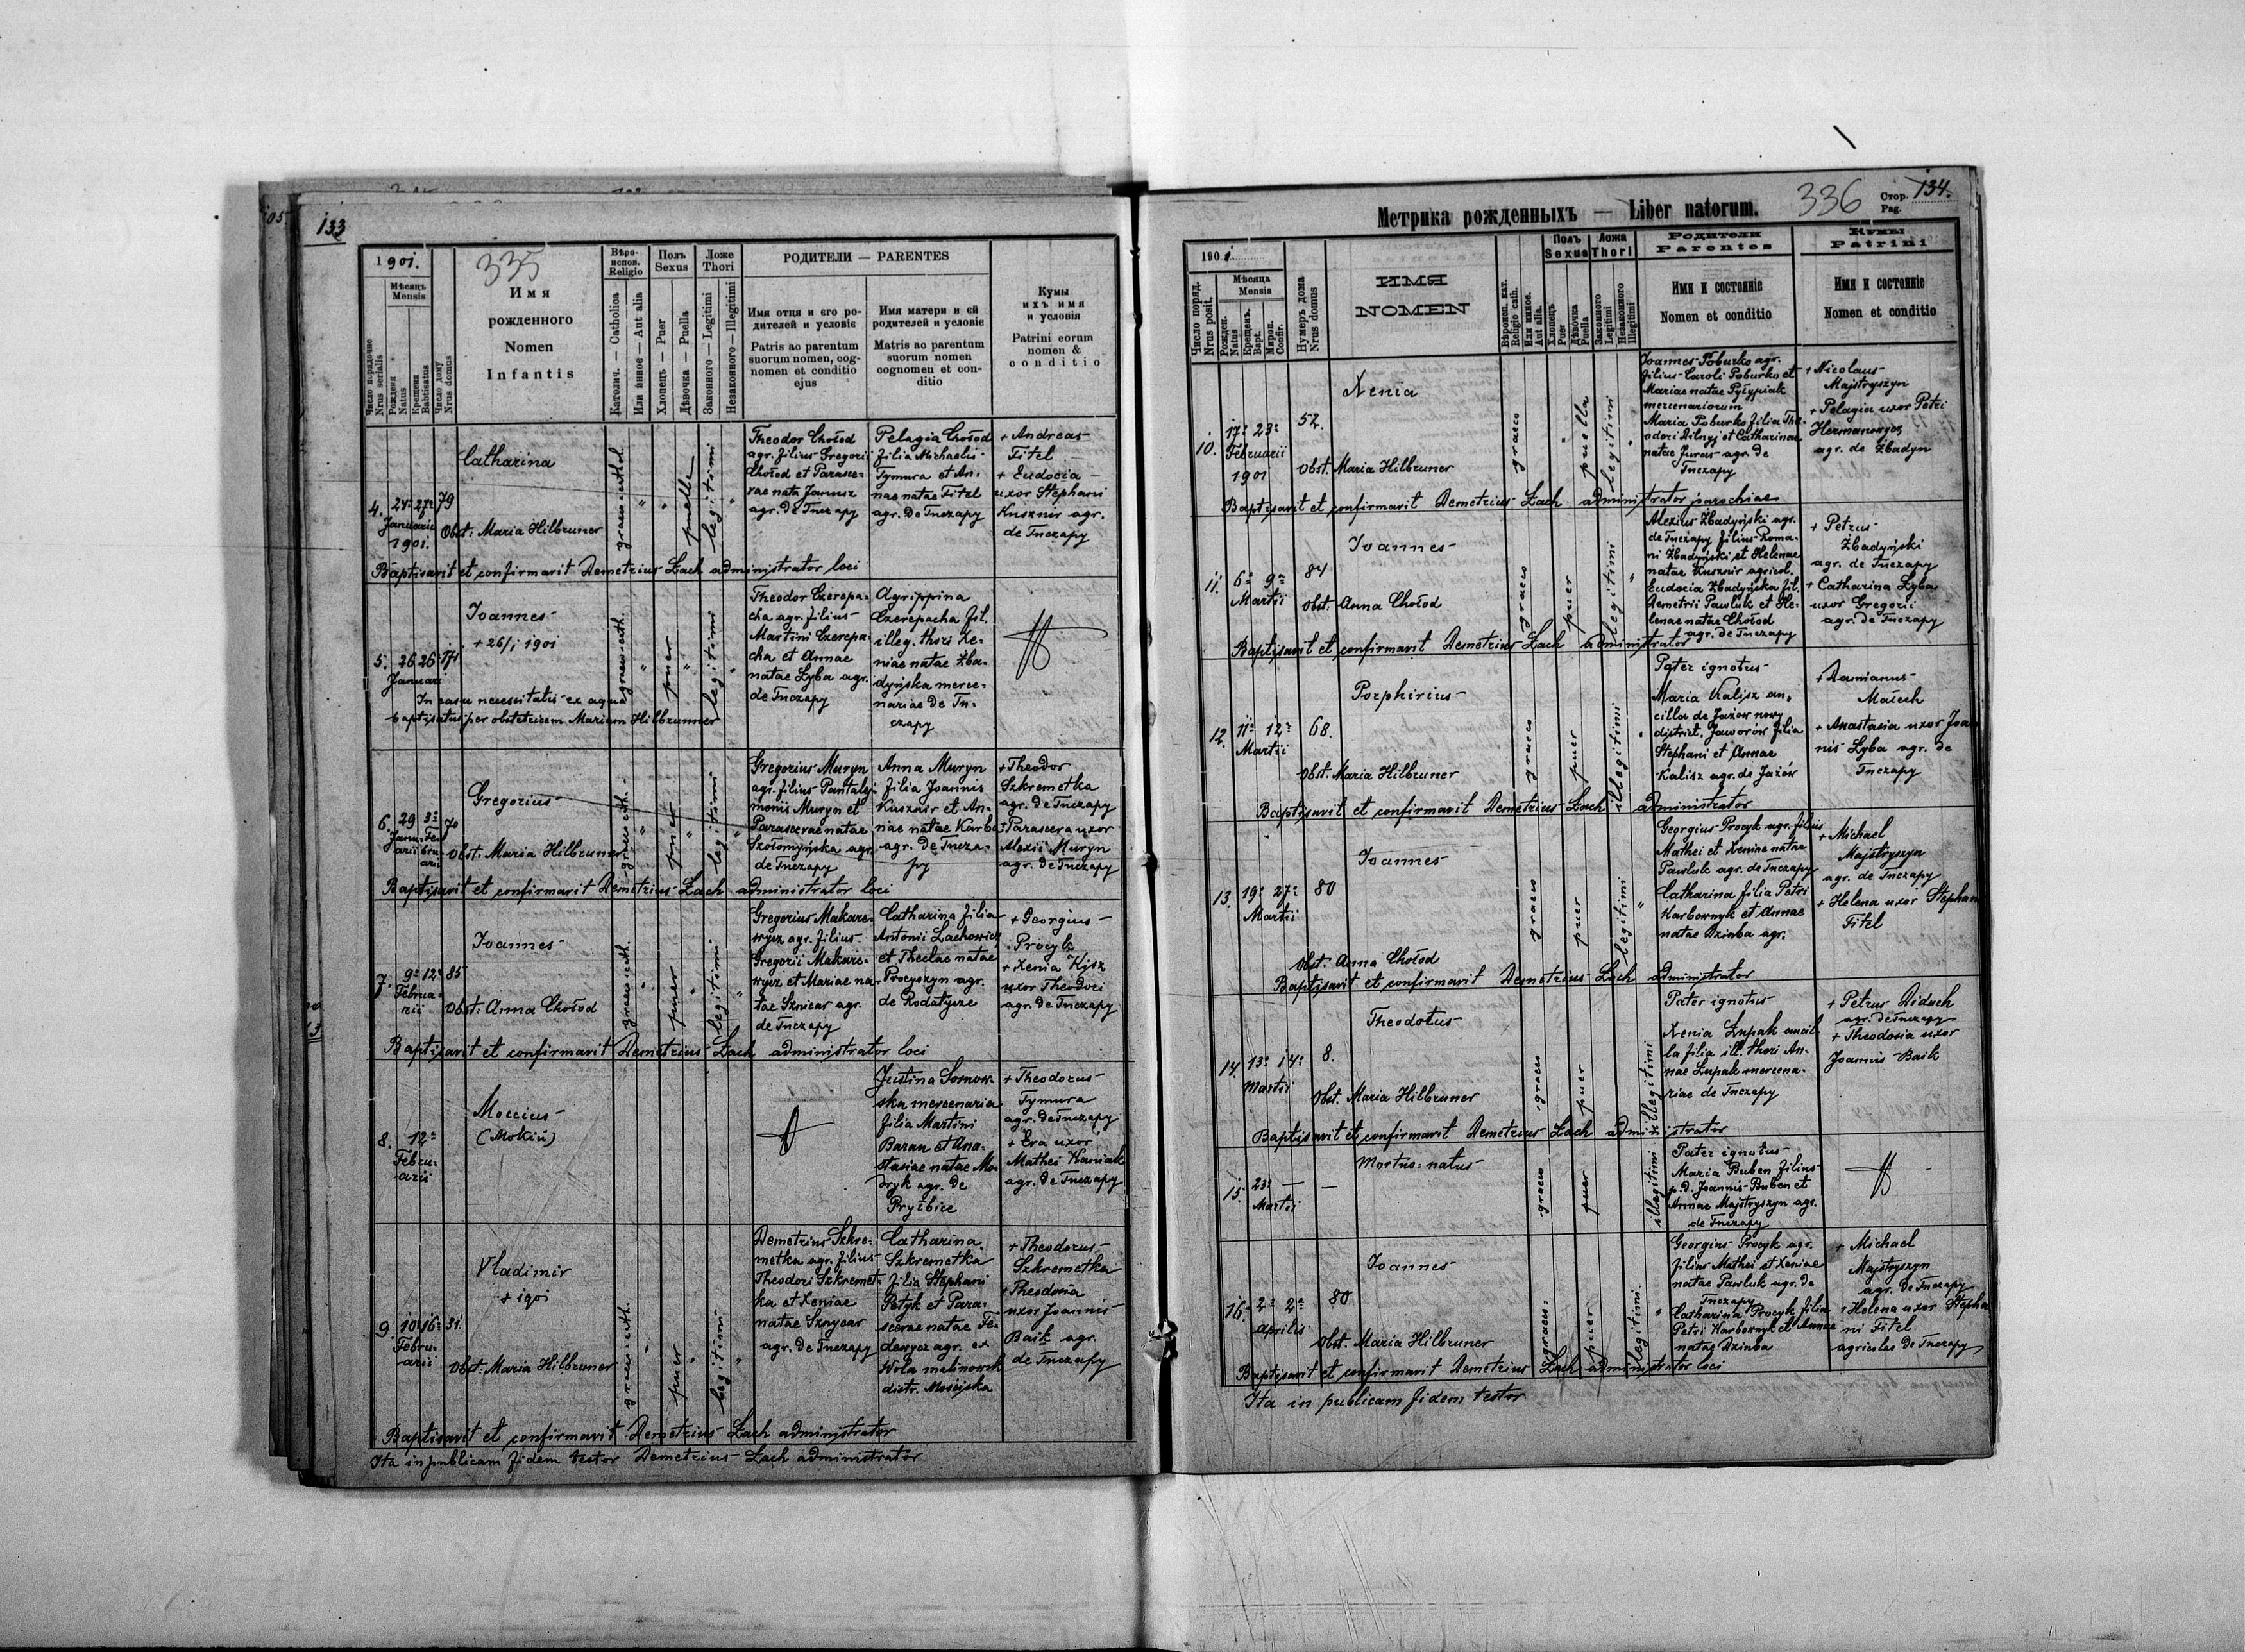 133
1901.
335
Мѣсяць
Mensis
Число порядочне
Nrus serialis
Рождени
Natus
Крещени
Babtisatus
Число дому
Nrus domus
Имя
рожденного
Nomen
Infantis
Вѣро-
испов.
Religio
Католич. — Catholica
Или инное — Aut alia
Полъ
Sexus
Хлопець — Puer
Дѣвочка — Puella
Ложе
Thori
Законного — Legitimi
Незаконного — Illegitimi
РОДИТЕЛИ — PARENTES
Имя отця и єго ро-
дителей и условіє
Patris ac parentum
suorum nomen, cog-
nomen et conditio
ejus
Имя матери и єй
родителей и условіє
Matris ac parentum
suorum nomen
cognomen et con-
ditio
Кумы
ихъ имя
и условія
Patrini eorum
nomen &
conditio
4.
24ª 27ª 79
Januarii
1901.
Catharina
Obst: Maria Hilbruner
puella
legitimi
Theodor Chołod
agr. filius Gregorii
Chołod et Parasce-
vae nata Janusz
agr. de Tuczapy
Pelagia Chołod
filia Michaelis
Tymura et An-
nae natae Fitel
agr. de Tuczapy
+ Andreas
Fitel
+ Eudocia
uxor Stephani
Kusznir agr.
de Tuczapy
Baptisavit et confirmavit Demetrius Łach administrator loci
5.
26 26
Januarii
Ioannes
+ 26/1 1901
puer
legitimi
Theodor Czerepa-
cha agr. filius
Martini Czerepa-
cha et Annae
natae Łyba agr.
de Tuczapy
Agrippina
Czerepacha fil.
illeg. thori Xe-
niae natae Żba-
dyńska merce-
nariae de Tu-
czapy
In casu necessitatis ex aqua
baptisatus per obstetricem Mariam Hilbrunner
6.
29 3ª 70
Janu- Fe-
arii bru-
arii
Gregorius
Obst. Maria Hilbruner
puer
legitimi
Gregorius Muryn
agr. filius Pantale-
monis Muryn et
Parascevae natae
Szołomyńska agr.
de Tuczapy
Anna Muryn
filia Joannis
Kusznir et An-
nae natae Karbo
agr. de Tucza-
py
+ Theodor
Szkremetka
agr. de Tuczapy
+ Parasceva uxor
Alexii Muryn
agr. de Tuczapy
Baptisavit et confirmavit Demetrius Łach administrator loci
7.
9ª 12ª 85
Februa-
rii
Ioannes
Obst: Anna Chołod
puer
legitimi
Gregorius Makare-
wycz agr. filius
Gregorii Makare-
wycz et Mariae na-
tae Sznicar agr.
de Tuczapy
Catharina filia
Antonii Lachowicz
et Theclae natae
Procyszyn agr.
de Rodatycze
+ Georgius
Procyk
+ Xenia Kysz
uxor Theodori
agr. de Tuczapy
Baptisavit et confirmavit Demetrius Łach administrator loci
8.
12ª
Febru-
arii
Moccius
(Mokiй)
Justina Sosnow-
ska mercenaria
filia Martini
Baran et Ana-
stasiae natae Mo-
dryk agr. de
Pryłbice
+ Theodorus
Tymura
agr. de Tuczapy
+ Eva uxor
Mathei Kaniak
agr. de Tuczapy
9.
10ª 16ª 31.
Febru-
arii
Vladimir
+ 1901
Obst: Maria Hilbruner
puer
legitimi
Demetrius Szkre-
metka agr. filius
Theodori Szkremet-
ka et Xeniae
natae Sznycar
agr. de Tuczapy
Catharina
Szkremetka
filia Stephani
Petyk et Para-
scevae natae Fe-
denycz agr. ex
Wola malinowsk
distr. Mościska
+ Theodorus
Szkremetka
+ Theodosia
uxor Joannis
Baik agr.
de Tuczapy
Baptisavit et confirmavit Demetrius Łach administrator
Ita in publicam fidem testor Demetrius Łach administrator
Метрика рожденныхъ — Liber natorum.
336
Стор.
Pag.
134.
1901.
Число поряд.
Nrus posit.
Мѣсяца
Mensis
Рожден.
Natus
Крещенъ.
Bapt.
Мѵроп.
Confir.
Нумеръ дома
Nrus domus
ИМЯ
NOMEN
Religio cath.
Или инное.
Aut alia.
Полъ
Sexus
Хлопець
Puer
Дѣвочка
Puella
Ложа
Thori
Законного
Legitimi
Незаконного
Illegitimi
Родители
Parentes
Имя и состояніе
Nomen et conditio
Кумы
Patrini
Имя и состояніе
Nomen et conditio
10.
17ª 23ª
Februarii
1901
52.
Xenia
Obst. Maria Hilbruner
graeco
puella
legitimi
Joannes Poburko agr.
filius Caroli Poburko et
Mariae natae Pyłypiak
mercenariorum
Maria Poburko filia The-
odori Dilnyj et Catharinae
natae Juras agr. de
Tuczapy
+ Nicolaus
Majstryszyn
+ Pelagia uxor Petri
Hermanowycz
agr. de Żbadyn
Baptisavit et confirmavit Demetrius Łach administrator parochiae
11.
6ª 9ª
Martii
84
Ioannes
Obst. Anna Chołod
graeco
puer
legitimi
Alexius Żbadyński agr.
de Tuczapy filius Roma-
ni Żbadyński et Helenae
natae Kusznir agricol.
Eudocia Żbadyńska fil.
Demetrii Pawluk et He-
lenae natae Chołod
agr. de Tuczapy
+ Petrus
Żbadyński
agr. de Tuczapy
+ Catharina Łyba
uxor Gregorii
agr. de Tuczapy
Baptisavit et confirmavit Demetrius Łach administrator
12.
11ª 12ª
Martii
68.
Porphirius
Obst. Maria Hilbruner
graeco
puer
illegitimi
Pater ignotus
Maria Kalisz an-
cilla de Jażów nowy
district. Jaworów filia
Stephani et Annae
Kalisz agr. de Jażów
+ Damianus
Maiech
+ Anastasia uxor Joan
nis Łyba agr. de
Tuczapy
Baptisavit et confirmavit Demetrius Łach administrator
13.
19ª 27ª
Martii
80
Ioannes
Obst. Anna Chołod
graeco
puer
legitimi
Georgius Procyk agr. filius
Mathei et Xeniae natae
Pawluk agr. de Tuczapy
Catharina filia Petri
Karbownyk et Annae
natae Dzinba agr.
+ Michael
Majstryszyn
agr. de Tuczapy
+ Helena uxor Stephan
Fitel
Baptisavit et confirmavit Demetrius Łach administrator
14.
13ª 14ª
Martii
8.
Theodotus
Obst. Maria Hilbruner
graeco
puer
illegitimi
Pater ignotus
Xenia Łupak ancil-
la filia ill. thori An-
nae Łupak mercena-
riae de Tuczapy
+ Petrus Diduch
agr. de Tuczapy
+ Theodosia uxor
Joannis Baik
Baptisavit et confirmavit Demetrius Łach administrator
15.
23ª — —
Martii
Mortuo-natus
graeco
puer
illegitimi
Pater ignotus
Maria Buben filius
p.d. Joannis Buben et
Annae Majstryszyn agr.
de Tuczapy
16.
2ª 2ª
Aprilis
80
Ioannes
Obst. Maria Hilbruner
graeco
puer
legitimi
Georgius Procyk agr.
filius Mathei et Xeniae
natae Pawluk agr. de
Tuczapy
Catharina Procyk filia
Petri Karbownyk et Annae
natae Dzinba
+ Michael
Majstryszyn
agr. de Tuczapy
+ Helena uxor Stepha
ni Fitel
agricolae de Tuczapy
Baptisavit et confirmavit Demetrius Łach administrator loci
Ita in publicam fidem testor